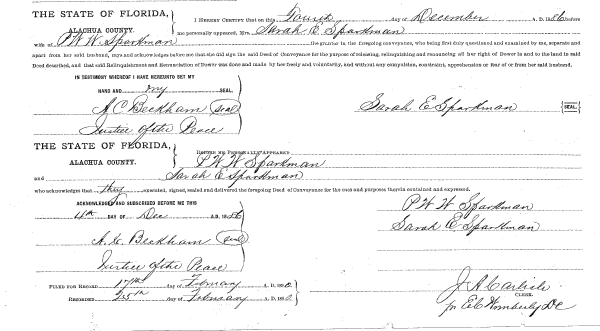 THE STATE OF FLORIDA,
ALACHUA COUNTY.
I HEREBY CERTIFY that on this Fourth day of December A. D. 18 before
me personally appeared, Mrs. Sarah E. Sparkman
wife of P. W. W. Sparkman the grantor in the foregoing conveyance, who being first duly questioned and examined by me, separate and
apart from her said husband, says and acknowledges before me that she did sign the said Deed of Conveyance for the purpose of releasing, relinquishing and renouncing all her right of Dower in and to the land in said
Deed described, and that said Relinquishment and Renunciation of Dower was done and made by her freely and voluntarily, and without any compulsion, constraint, apprehension or fear of or from her said husband.
IN TESTIMONY WHEREOF I HAVE HERETO SET MY
HAND AND my SEAL,
A. C. Beckham (seal)
Justice of the Peace
Sarah E Sparkman SEAL.
THE STATE OF FLORIDA,
ALACHUA COUNTY.
BEFORE ME PERSONALLY APPEARED
P W W Sparkman
and Sarah E Sparkman
who acknowledges that they executed, signed, sealed and delivered the foregoing Deed of Conveyance for the uses and purposes therein contained and expressed.
ACKNOWLEDGED AND SUBSCRIBED BEFORE ME THIS
4th DAY OF Dec A.D. 18
A. C. Beckham (seal)
Justice of the Peace
P W W Sparkman
Sarah E Sparkman
FILED FOR RECORD 17th day of February A. D. 18
RECORDED 25th day of February A. D. 18
J A Carlisle
CLERK.
pr E C Wimberly D C